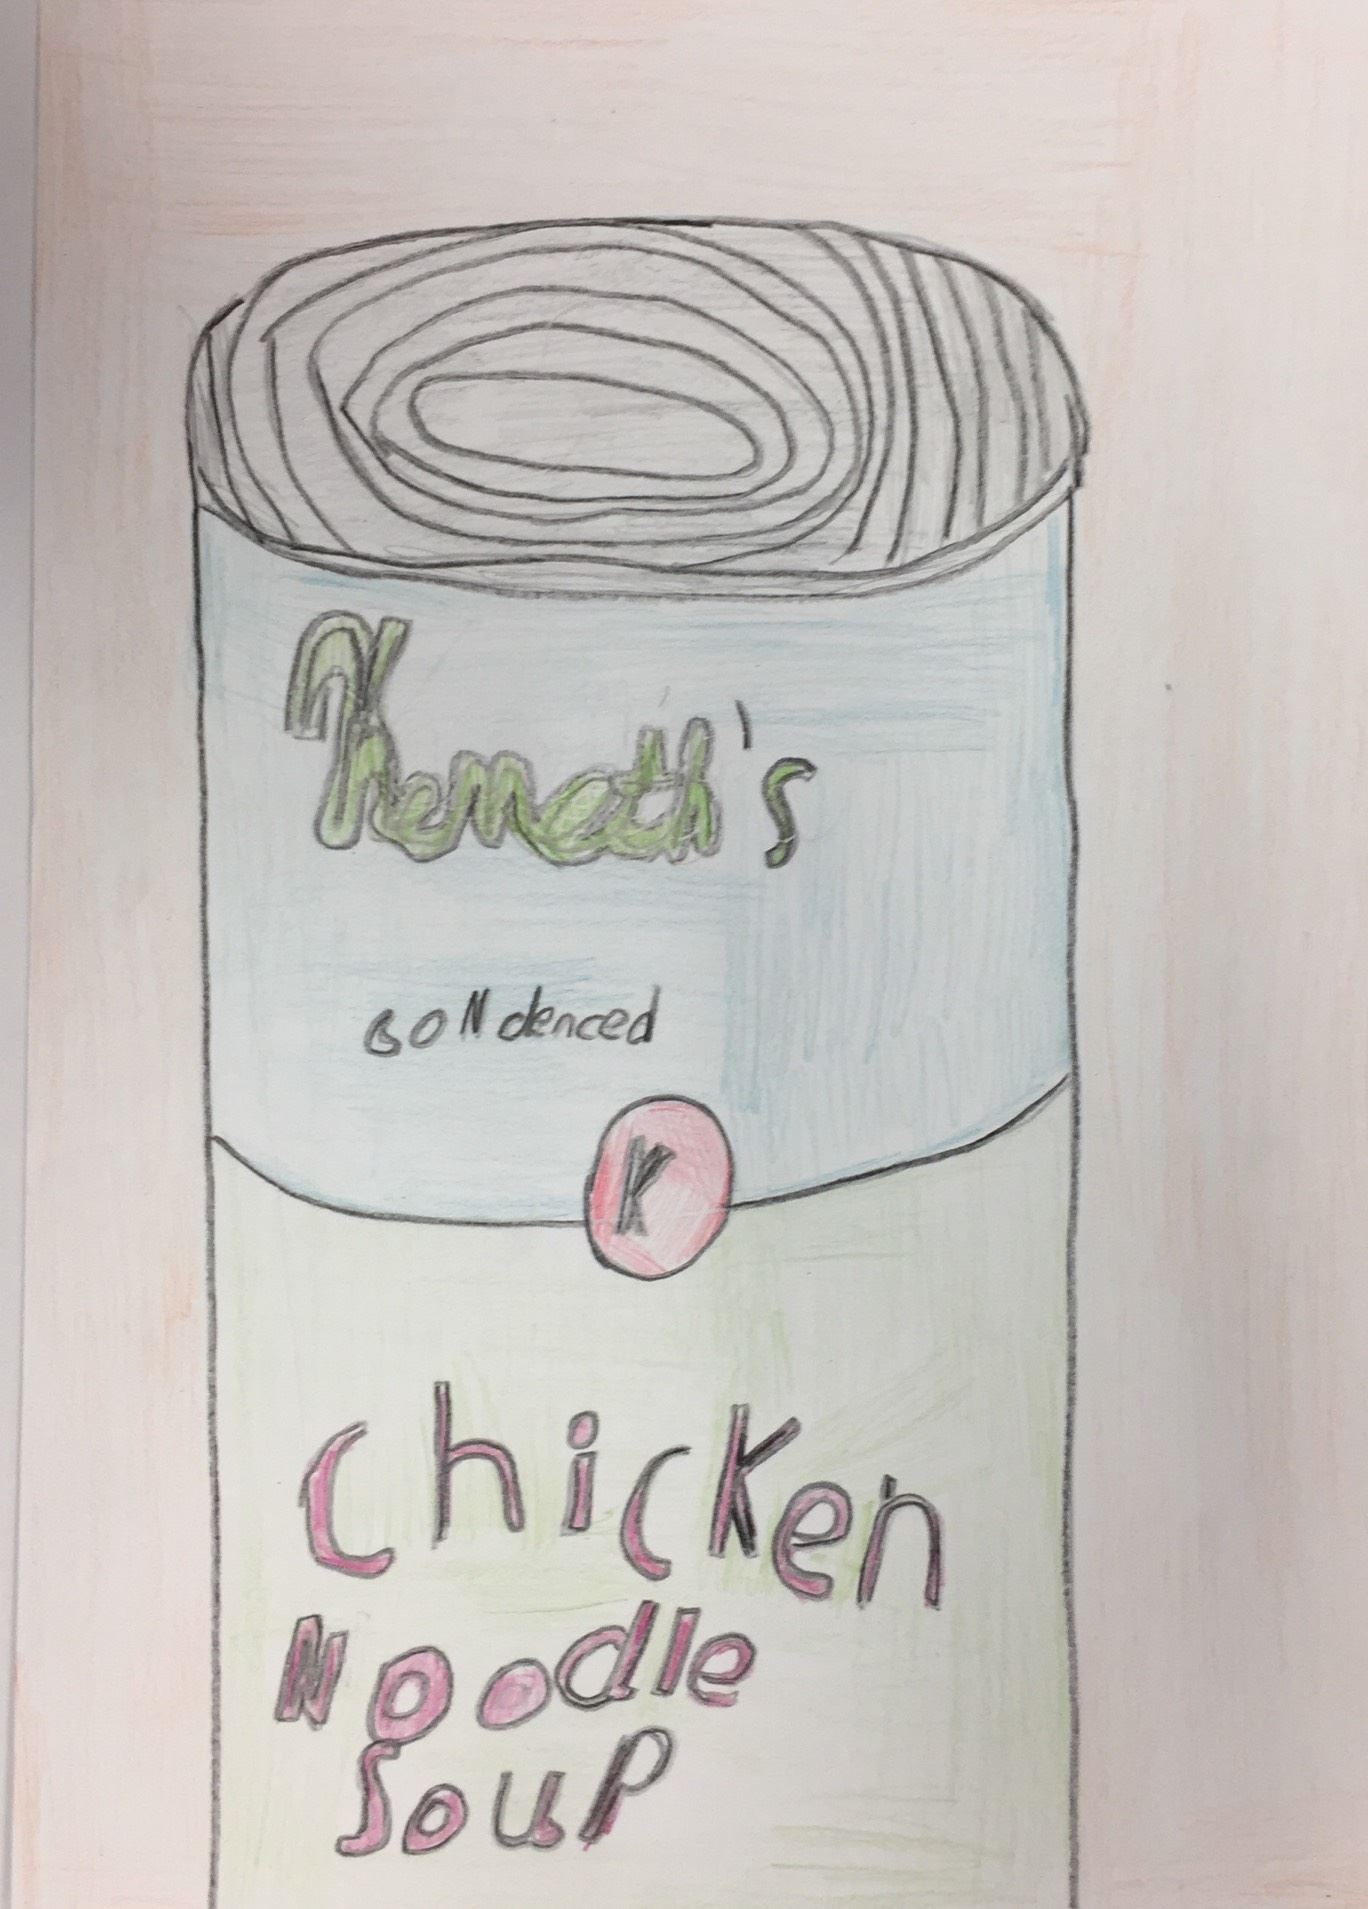 Kenneth's
condenced
K
Chicken
Noodle
Soup